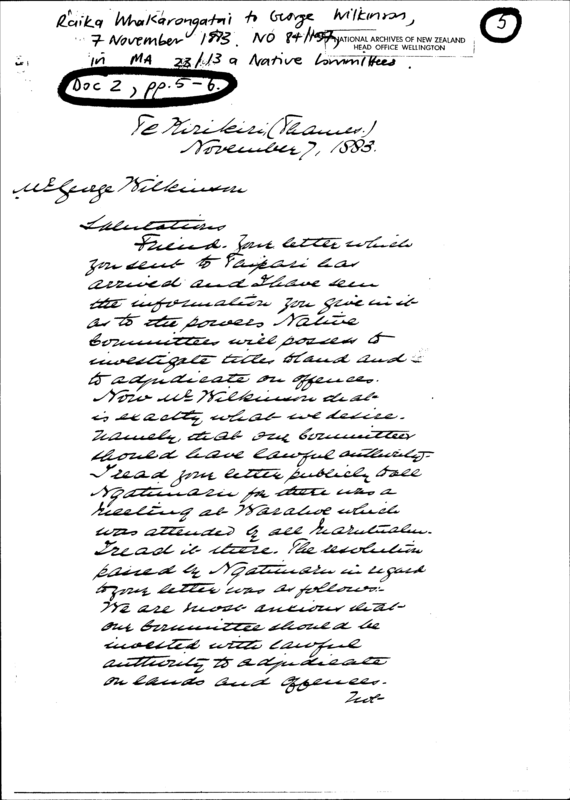 Raika Whakarongatai to George Wilkinson,
7 November 1883. NO 84/
in MA 23/13 a Native Committees.
NATIONAL ARCHIVES OF NEW ZEALAND
HEAD OFFICE WELLINGTON
5
Doc 2, pp. 5-6.
Te Kirikiri (Thames.)
November 7, 1883.
Mr George Wilkinson
Salutations
Friend. Your letter which
you sent to Taipari has
arrived and I have seen
the information you give in it
as to the powers Native
Committees will possess to
investigate titles to land and
to adjudicate on offences.
Now Mr Wilkinson that
is exactly what we desire.
Namely, that our Committees
should have lawful authority.
I read your letter publicly to all
Ngatimaru for there was a
meeting at Warahoe which
was attended by all Marutuahu.
I read it there. The resolution
passed by Ngatimaru in regard
to your letter was as follows:-
We are most anxious that
our Committee should be
invested with lawful
authority to adjudicate
on lands and offences.